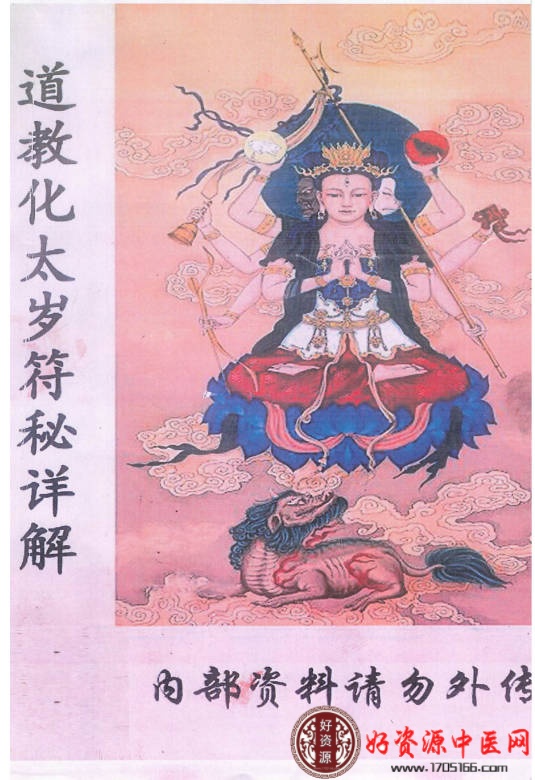 道教化太岁符秘详解
内部资料请勿外传
好资源
好资源中医网
www.1705166.com